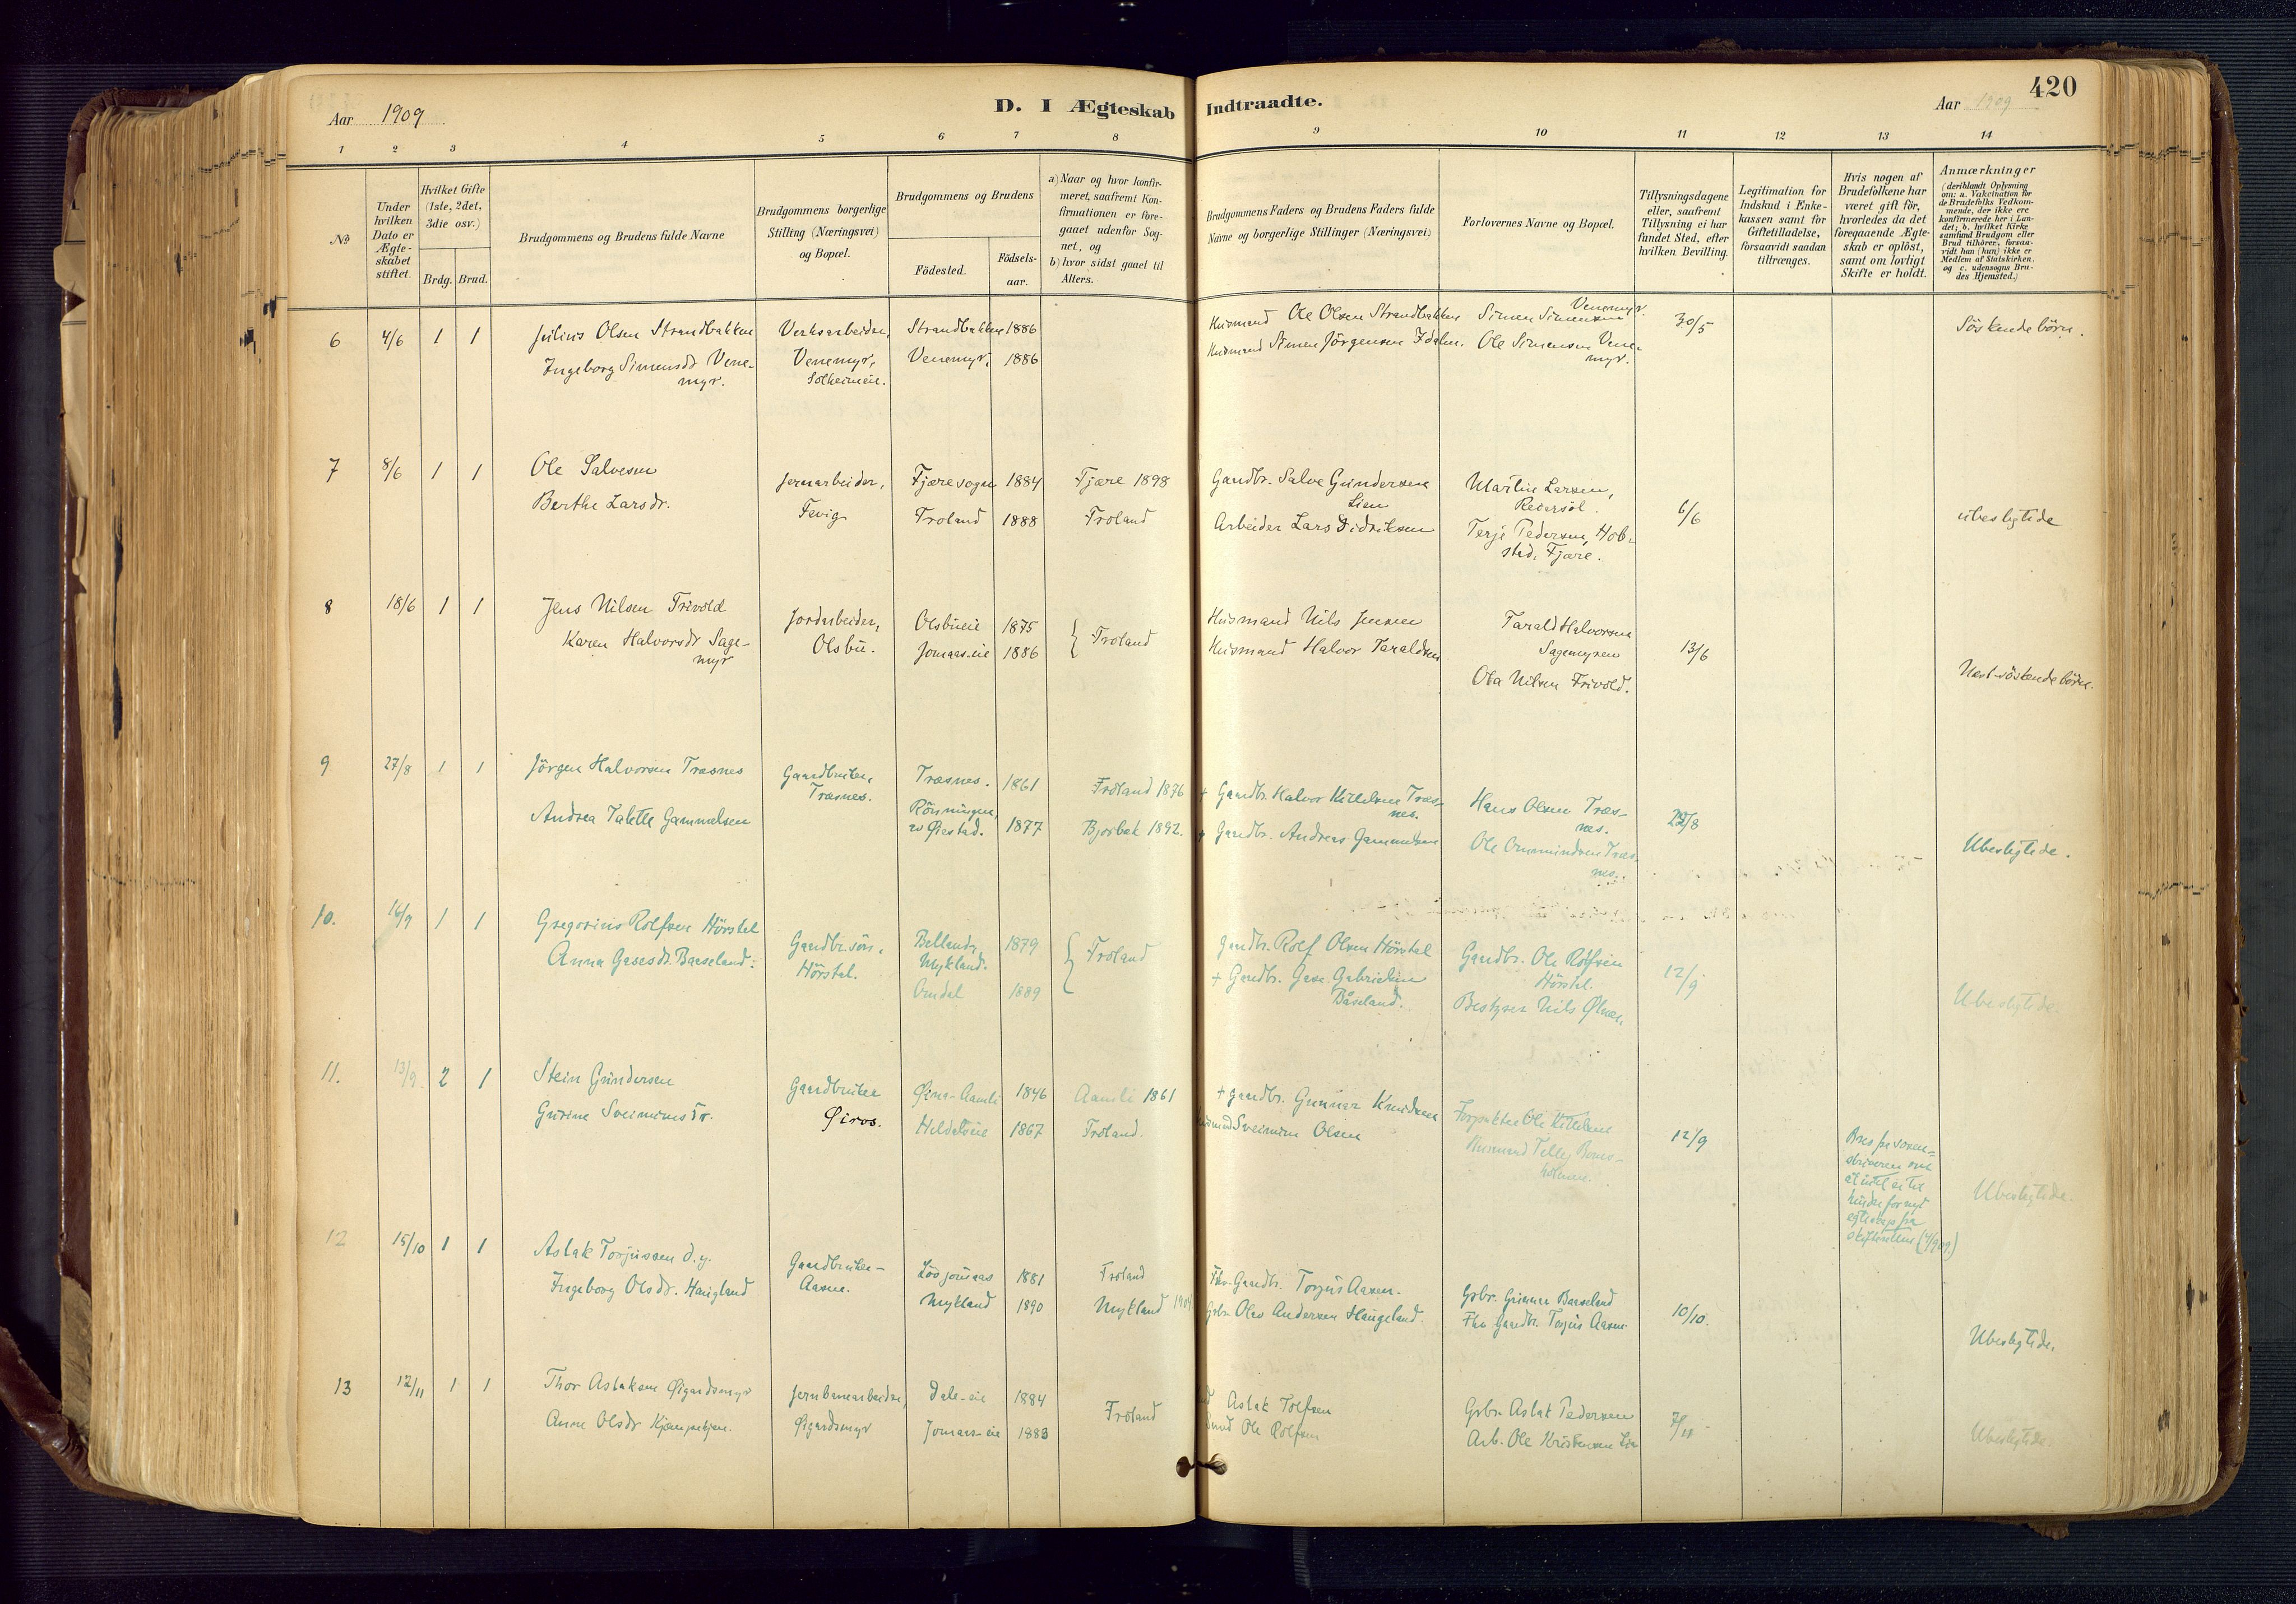 420
Aar 1909
D. I Ægteskab Indtraadte.
Aar 1909
1 2 3 4 5 6 7 8 9 10 11 12 13 14
No
Under
hvilken
Dato er
Ægte-
skabet
stiftet.
Hvilket Gifte
(1ste, 2det,
3die osv.)
Brdg. Brud.
Brudgommens og Brudens fulde Navne
Brudgommens borgerlige
Stilling (Næringsvei)
og Bopæl.
Brudgommens og Brudens
Födested.
Födsels-
aar.
a) Naar og hvor konfir-
meret, saafremt Kon-
firmationen er fore-
gaaet udenfor Sog-
net, og
b) hvor sidst gaaet til
Alters.
Brudgommens Faders og Brudens Faders fulde
Navne og borgerlige Stillinger (Næringsvei)
Forlovernes Navne og Bopæl.
Tillysningsdagene
eller, saafremt
Tillysning ei har
fundet Sted, efter
hvilken Bevilling.
Legitimation for
Indskud i Enke-
kassen samt for
Giftetilladelse,
forsaavidt saadan
tiltrænges.
Hvis nogen af
Brudefolkene har
været gift för,
hvorledes da det
foregaaende Ægte-
skab er oplöst,
samt om lovligt
Skifte er holdt.
Anmærkninger
(deriblandt Oplysning
om: a. Vakcination for
de Brudefolks Vedkom-
mende, der ikke ere
konfirmerede her i Lan-
det; b. hvilket Kirke
samfund Brudgom eller
Brud tilhörer, forsaa-
vidt han (hun) ikke er
Medlem af Statskirken.
og c. udensogns Bru-
des Hjemsted.)
6 4/6 1 1
Julius Olsen Strandbakken
Ingeborg Simensdr Vene-
myr.
Verksarbeider,
Venemyr,
Solheimeie.
Strandbakken 1886
Venemyr, 1886
Husmand Ole Olsen Strandbakken
Husmand Simen Jörgensen
Simen Simensen Venemyr.
Ole Simensen Vene-
myr.
30/5
Söskendebörn.
7 8/6 1 1
Ole Salvesen
Berthe Larsdr.
Jernarbeider,
Fevig
Fjære sogn 1884
Froland 1888
Fjære 1898
Froland
Gaardbr. Salve Gundersen
Lien
Arbeider Lars Didriksen
Martin Larsen,
Terje Pedersen, Hob-
sted, Fjære.
6/6
ubeslegtede
8 18/6 1 1
Jens Nilsen Frivold
Karen Halvorsdr Sage-
myr
Jordarbeider,
Olsbu.
Olsbueie 1875
Jomaas-eie 1886
Froland
Husmand Nils Jensen
Husmand Halvor Taraldsen
Tarald Halvorsen
Sagemyren
Ola Nilsen Frivold.
13/6
Næst-söskendebörn.
9 27/8 1 1
Jörgen Halvorsen Træsnes
Andrea Talette Gammelsen
Gaardbruker,
Træsnes.
Træsnes. 1861
Rönningen,
av Øiestad. 1877
Froland 1876
Bjorbæk 1892.
+ Gaardbr. Halvor Kittelsen Træs-
nes.
+ Gaardbr. Andreas Gammelsen
Hans Olsen Træs-
nes.
Ole Ommundsen Træs-
nes.
22/8
Ubeslegtede.
10. 1 1
Gregorius Rolfsen Hörstal
Anna Gasesdr. Baaseland.
Gaardbr. sön,
Hörstal.
Belland,
Mykland. 1879
Omdal 1889
Froland
Gaardbr. Rolf Olsen Hörstal
+ Gaardbr. Gase Gabrielsen
Båseland.
Gaardbr. Ole Rolfsen
Hörstal.
Bestyrer Nils
12/9
Ubeslegtede.
11. 13/9. 2 1
Stein Gundersen
Gurine Sveinunsdr.
Gaardbruker
Øivos.
Aamli 1846
Heldalseie 1867
Aamli 1861
Froland.
+ gaardbr. Gunnar Knudsen
Husmand Sveinun Olsen
Forpakter Ole Kittelsen
Husmand Tellef
12/9
Ubeslegtede.
12 15/10 1 1
Aslak Torjussen d.y.
Ingeborg Olsdr. Haugland
Gaardbruker-
Aasen.
Lövjomaas 1881
Mykland 1890
Froland
Mykland
Fhv. Gaardbr. Torjus Aasen.
Gbr. Olav Andersen Haugeland
Gbr. Gunnar Baaseland
Fhv Gaardbr. Torjus Aasen
10/10.
Ubeslegtede.
13 12/11 1 1
Thor Aslaksen Øigardsmyr
Anne Olsdr
Jernbanearbeider,
Øigardsmyr
Dale-eie 1884
Jomaas-eie 1883
Froland
Aslak Tolfsen
Ole Rolfsen
Gbr. Aslak Pedersen
Arb. Ole Kristensen Lia
7/11
Ubeslegtede.